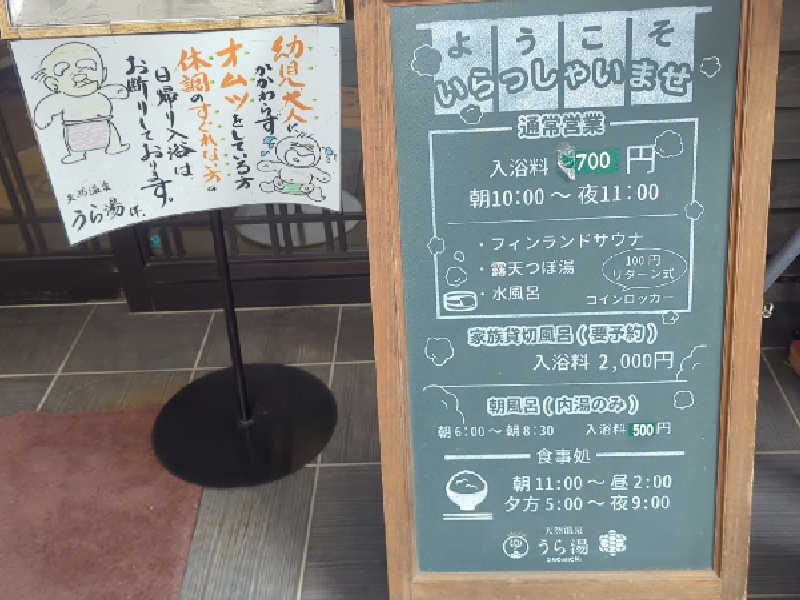 幼児、大人に
かかわらず
オムツをしている方
体調のすぐれない方は
日帰り入浴は
お断りしております。
天然温泉
うら湯
ようこそ
いらっしゃいませ
通常営業
入浴料 700 円
朝10:00 〜 夜11:00
・フィンランドサウナ
・露天つぼ湯
・水風呂
100円
リターン式
コインロッカー
家族貸切風呂(要予約)
入浴料 2,000円
朝風呂(内湯のみ)
朝6:00 〜 朝8:30 入浴料 500円
食事処
朝 11:00 〜 昼 2:00
夕方 5:00 〜 夜 9:00
天然温泉
うら湯